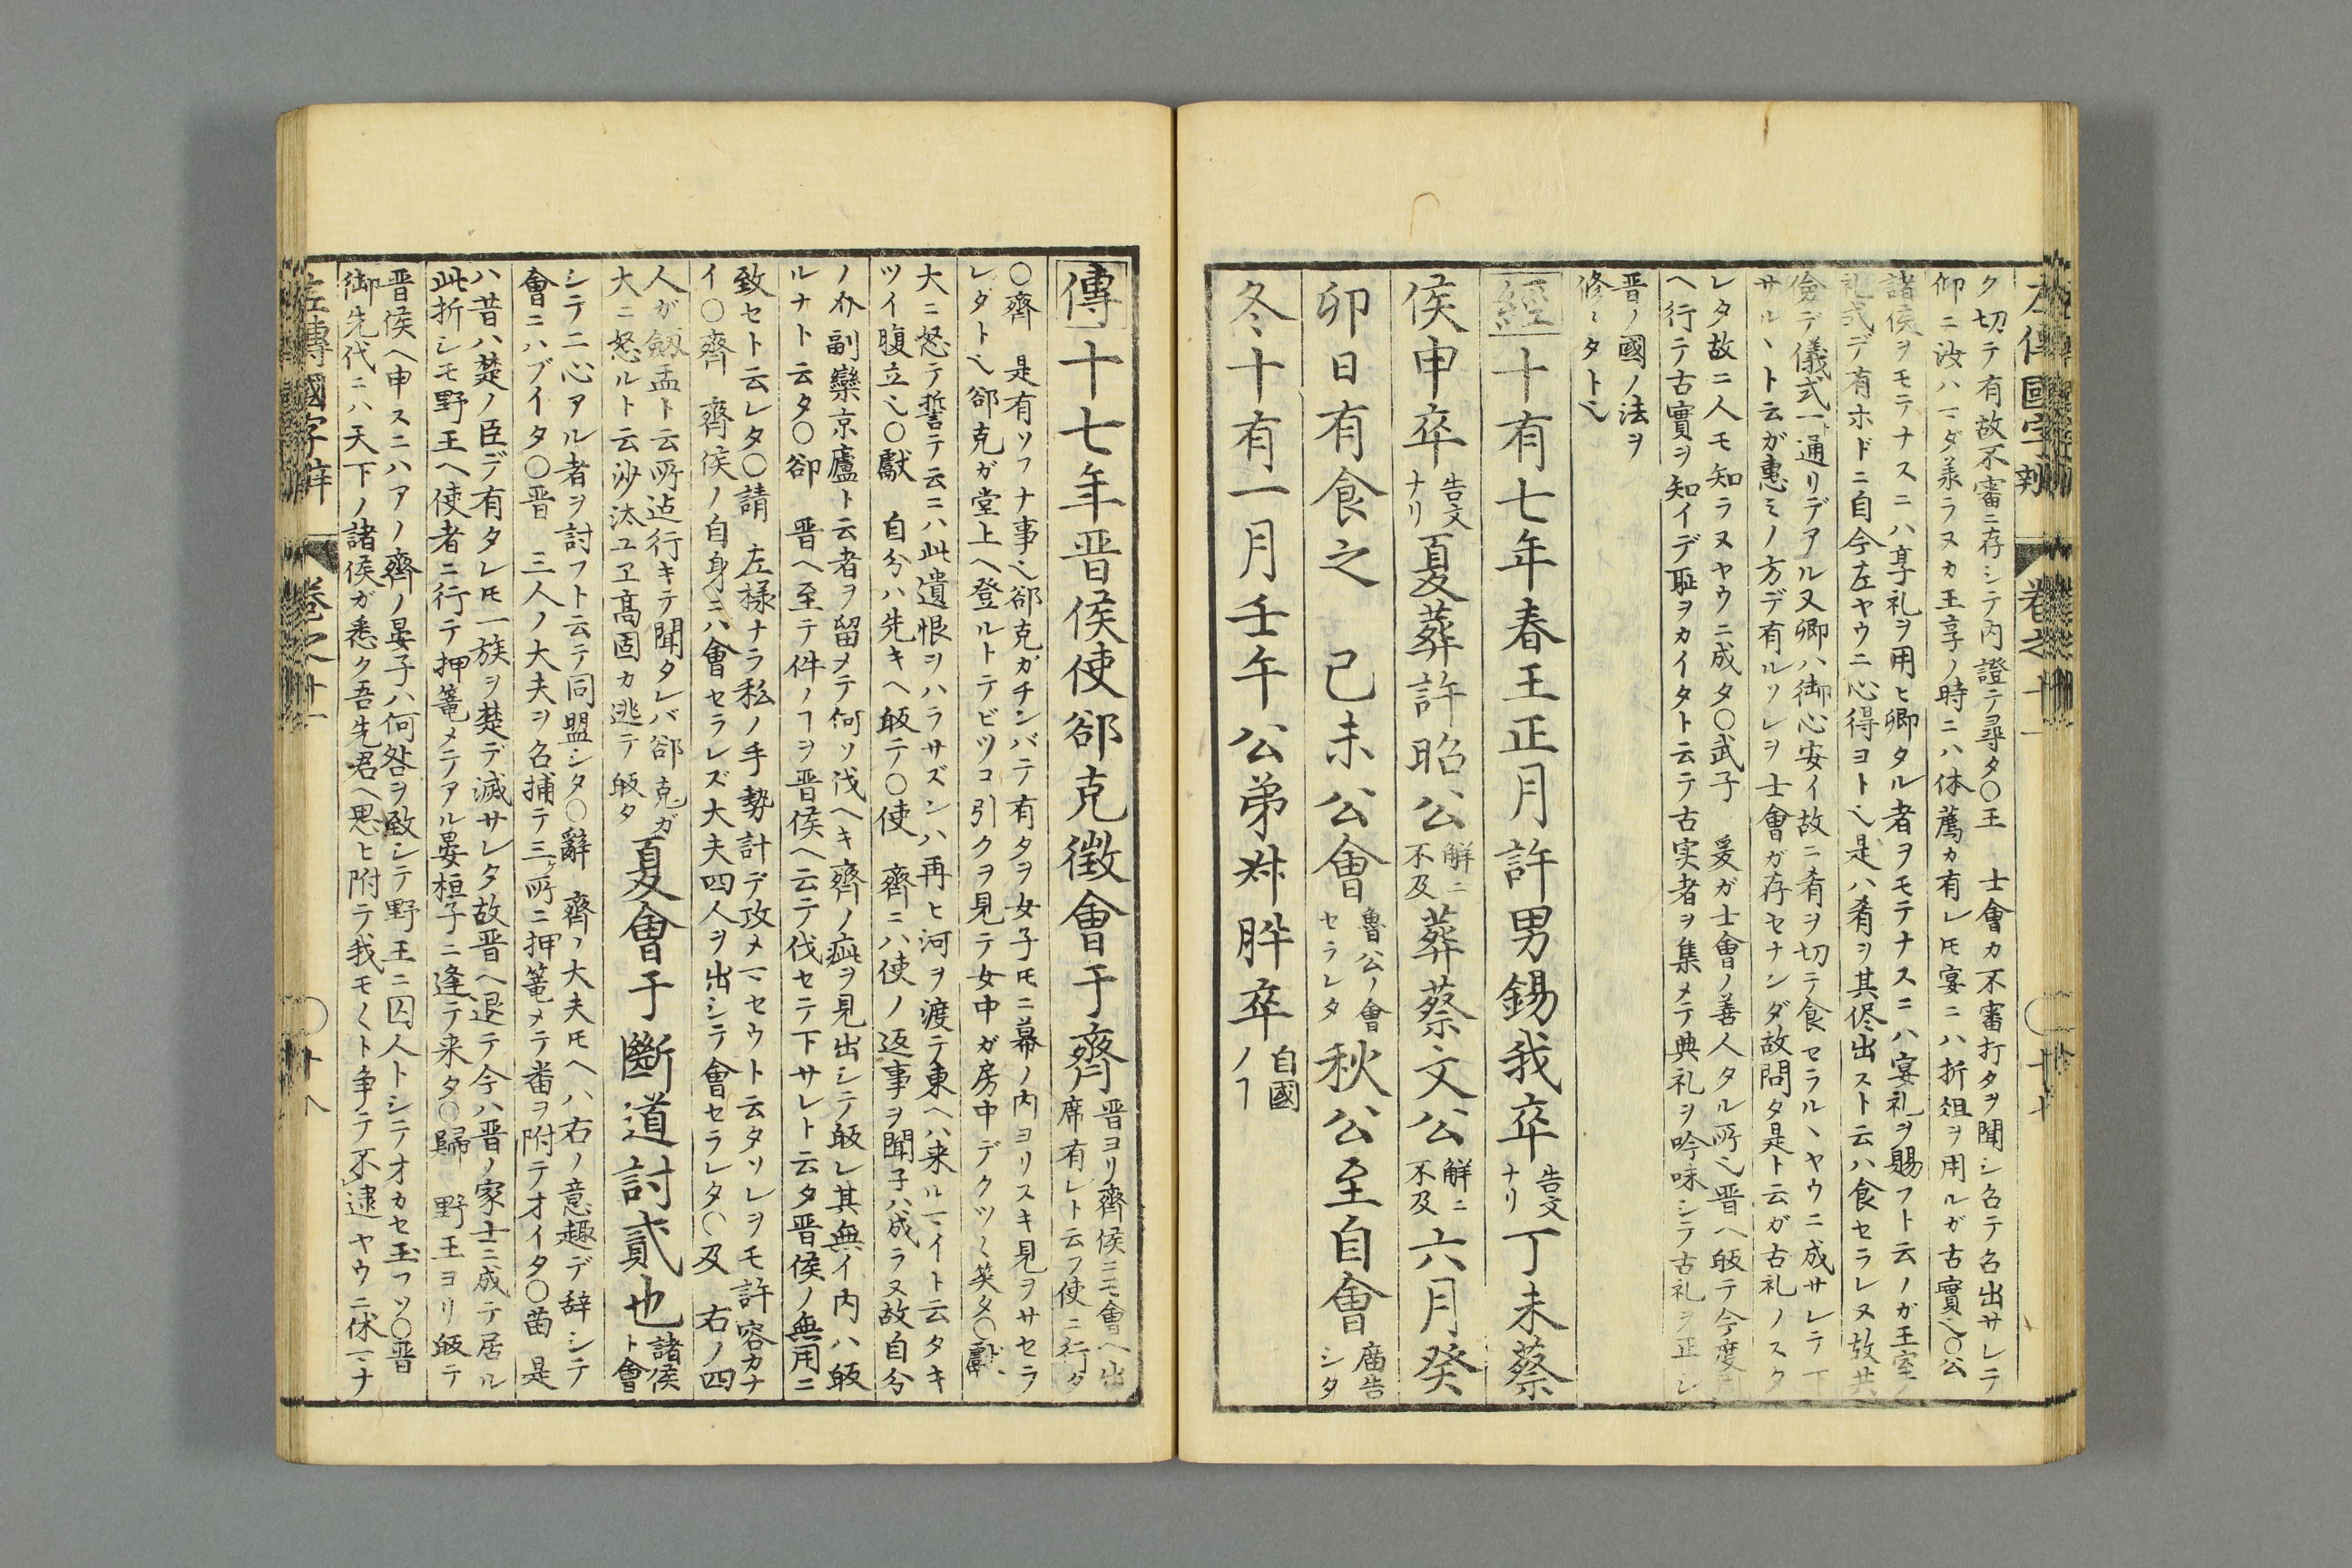 ク切テ有故不審ニ存シテ内證テ尋タ○王　士會カ不審打タヲ聞シ名テ名出サレテ
仰ニ汝ハ一ダ羕ラヌカ王享ノ時ニハ体薦カ有レ𪜈宴ニハ折俎ヲ用ルガ古實也○公
諸侯ヲモテナスニハ享礼ヲ用ヒ卿タル者ヲモテナスニハ宴礼ヲ賜フト云ノガ王室ノ
礼式デ有ホドニ自今左ヤウニ心得ヨト也是ハ肴ヲ其侭出スト云ハ食セラレヌ故共
儉デ儀式一ト通リデアル又卿ハ御心安イ故ニ肴ヲ切テ食セラルヽヤウニ成サレテ下
サルヽト云ガ惠ミノ方デ有ルソレヲ士會ガ存セナンダ故問タ是ト云ガ古礼ノスタ
レタ故ニ人モ知ラヌヤウニ成タ○武子　爰ガ士會ノ善人タル所也晋ヘ皈テ今度
ヘ行テ古實ヲ知イデ耻ヲカイタト云テ古実者ヲ集メテ典礼ヲ吟味シテ古礼ヲ正シ
晋ノ國ノ法ヲ
修ミタト也
經十有七年春王正月許男錫我卒告文ナリ丁未蔡
侯申卒告文ナリ夏葬許昭公解ニ不及葬蔡文公解ニ不及六月癸
卯日有食之　己未公會魯公ノ會セラレタ秋公至自會廟告シタ
冬十有一月壬午公弟叔肸卒自國ノヿ
傳十七年晋侯使郤克徵會于齊晋ヨリ齊侯ニモ會ヘ出席有レト云フ使ニ行タ
○齊　是有ソフナ事也郤克ガチンバテ有タヲ女子𪜈ニ幕ノ内ヨリスキ見ヲサセラ
レタト也郤克ガ堂上ヘ登ルトテビツコ引クヲ見テ女中ガ房中デクツ〱笑タ○獻
大ニ怒テ誓テ云ニハ此遺恨ヲハラサズンハ再ヒ河ヲ渡テ東ヘハ来ル一イト云タキ
ツイ腹立也○獻　自分ハ先キヘ皈テ○使　齊ニハ使ノ返事ヲ聞子ハ成ラヌ故自分
ノ介副欒京廬ト云者ヲ留メテ何ソ伐ヘキ齊ノ疵ヲ見出シテ皈レ其無イ内ハ皈
ルナト云タ○郤　晋ヘ至テ件ノヿヲ晋侯ヘ云テ伐セテ下サレト云タ晋侯ノ無用ニ
致セト云レタ○請　左樣ナラ私ノ手勢計デ攻メマセウト云タソレヲモ許容カナ
イ○齊　齊侯ノ自身ニハ會セラレズ大夫四人ヲ出シテ會セラレタ○及　右ノ四
人ガ斂盂ト云所迠行キテ聞タレバ郤克ガ
大ニ怒ルト云沙汰ユヱ髙固カ逃テ皈タ夏會于斷道討貳也諸侯ト會
シテ二心アル者ヲ討フト云テ同盟シタ○辭　齊ノ大夫𪜈ヘハ右ノ意趣デ辞シテ
會ニハブイタ○晋　三人ノ大夫ヲ召捕テ三ケ所ニ押篭メテ番ヲ附テオイタ○苗　是
ハ昔ハ楚ノ臣デ有タレ𪜈一族ヲ楚デ滅サレタ故晋ヘ退テ今ハ晋ノ家士ニ成テ居ル
此折シモ野王ヘ使者ニ行テ押篭メテアル晏桓子ニ逢テ来タ○歸　野王ヨリ皈テ
晋侯ヘ申スニハアノ齊ノ晏子ハ何咎ヲ致シテ野王ニ囚人トシテオカセ玉フソ○晋
御先代ニハ天下ノ諸侯ガ悉ク吾先君ヘ思ヒ附テ我モ〱ト争テ不逮ヤウニ伏一ナ
左傳國字辯　卷之十一　○十八